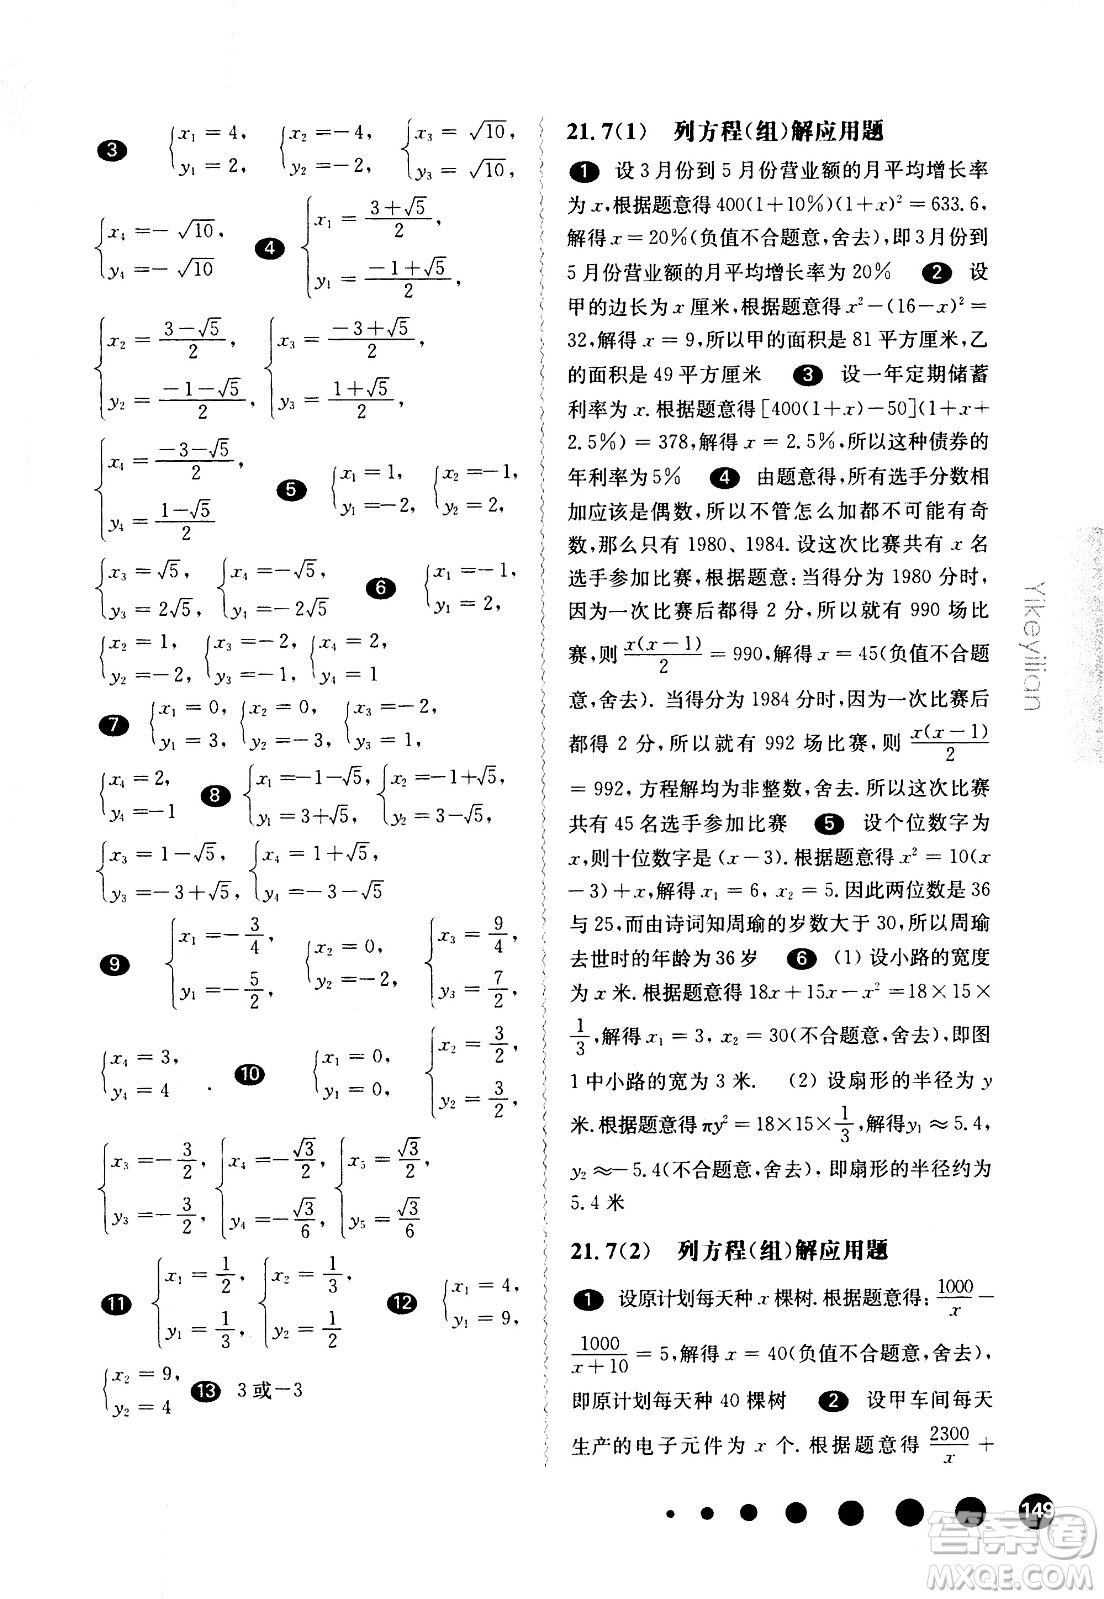 3 {x₁ = 4, y₁ = 2, {x₂ =－4, y₂ =－2, {x₃ = √10, y₃ = √10,
{x₄ =－√10, y₄ =－√10 4 {x₁ = (3＋√5)/2, y₁ = (－1＋√5)/2,
{x₂ = (3－√5)/2, y₂ = (－1－√5)/2, {x₃ = (－3＋√5)/2, y₃ = (1＋√5)/2,
{x₄ = (－3－√5)/2, y₄ = (1－√5)/2 5 {x₁ = 1, y₁ =－2, {x₂ =－1, y₂ = 2,
{x₃ = √5, y₃ = 2√5, {x₄ =－√5, y₄ =－2√5 6 {x₁ =－1, y₁ = 2,
{x₂ = 1, y₂ =－2, {x₃ =－2, y₃ =－1, {x₄ = 2, y₄ = 1
7 {x₁ = 0, y₁ = 3, {x₂ = 0, y₂ =－3, {x₃ =－2, y₃ = 1,
{x₄ = 2, y₄ =－1 8 {x₁ =－1－√5, y₁ = 3＋√5, {x₂ =－1＋√5, y₂ = 3－√5,
{x₃ = 1－√5, y₃ =－3＋√5, {x₄ = 1＋√5, y₄ =－3－√5
9 {x₁ =－3/4, y₁ =－5/2, {x₂ = 0, y₂ =－2, {x₃ = 9/4, y₃ = 7/2,
{x₄ = 3, y₄ = 4. 10 {x₁ = 0, y₁ = 0, {x₂ = 3/2, y₂ = 3/2,
{x₃ =－3/2, y₃ =－3/2, {x₄ =－√3/2, y₄ =－√3/6, {x₅ = √3/2, y₅ = √3/6
11 {x₁ = 1/2, y₁ = 1/3, {x₂ = 1/3, y₂ = 1/2 12 {x₁ = 4, y₁ = 9,
{x₂ = 9, y₂ = 4 13 3 或－3
21.7(1) 列方程(组)解应用题
1 设 3 月份到 5 月份营业额的月平均增长率
为 x,根据题意得 400(1＋10%)(1＋x)² = 633.6,
解得 x = 20%(负值不合题意,舍去),即 3 月份到
5 月份营业额的月平均增长率为 20% 2 设
甲的边长为 x 厘米,根据题意得 x²－(16－x)² =
32,解得 x = 9,所以甲的面积是 81 平方厘米,乙
的面积是 49 平方厘米 3 设一年定期储蓄
利率为 x.根据题意得[400(1＋x)－50](1＋x＋
2.5%) = 378,解得 x = 2.5%,所以这种债券的
年利率为 5% 4 由题意得,所有选手分数相
加应该是偶数,所以不管怎么加都不可能有奇
数,那么只有 1980、1984. 设这次比赛共有 x 名
选手参加比赛,根据题意:当得分为 1980 分时,
因为一次比赛后都得 2 分,所以就有 990 场比
赛,则 x(x－1)/2 = 990,解得 x = 45(负值不合题
意,舍去). 当得分为 1984 分时,因为一次比赛后
都得 2 分,所以就有 992 场比赛,则 x(x－1)/2
= 992, 方程解均为非整数,舍去.所以这次比赛
共有 45 名选手参加比赛 5 设个位数字为
x,则十位数字是(x－3).根据题意得 x² = 10(x
－3)＋x,解得 x₁ = 6, x₂ = 5.因此两位数是 36
与 25,而由诗词知周瑜的岁数大于 30,所以周瑜
去世时的年龄为 36 岁 6 (1) 设小路的宽度
为 x 米.根据题意得 18x＋15x－x² =18×15×
1/3,解得 x₁ = 3, x₂ = 30(不合题意,舍去),即图
1 中小路的宽为 3 米. (2) 设扇形的半径为 y
米.根据题意得 πy² = 18×15×1/3,解得 y₁ ≈ 5.4,
y₂ ≈－5.4(不合题意,舍去), 即扇形的半径约为
5.4 米
21.7(2) 列方程(组)解应用题
1 设原计划每天种 x 棵树.根据题意得: 1000/x －
1000/(x＋10) = 5,解得 x = 40(负值不合题意,舍去),
即原计划每天种 40 棵树 2 设甲车间每天
生产的电子元件为 x 个. 根据题意得 2300/x ＋
Yikeyilian
149
答案圈
MXQE.COM